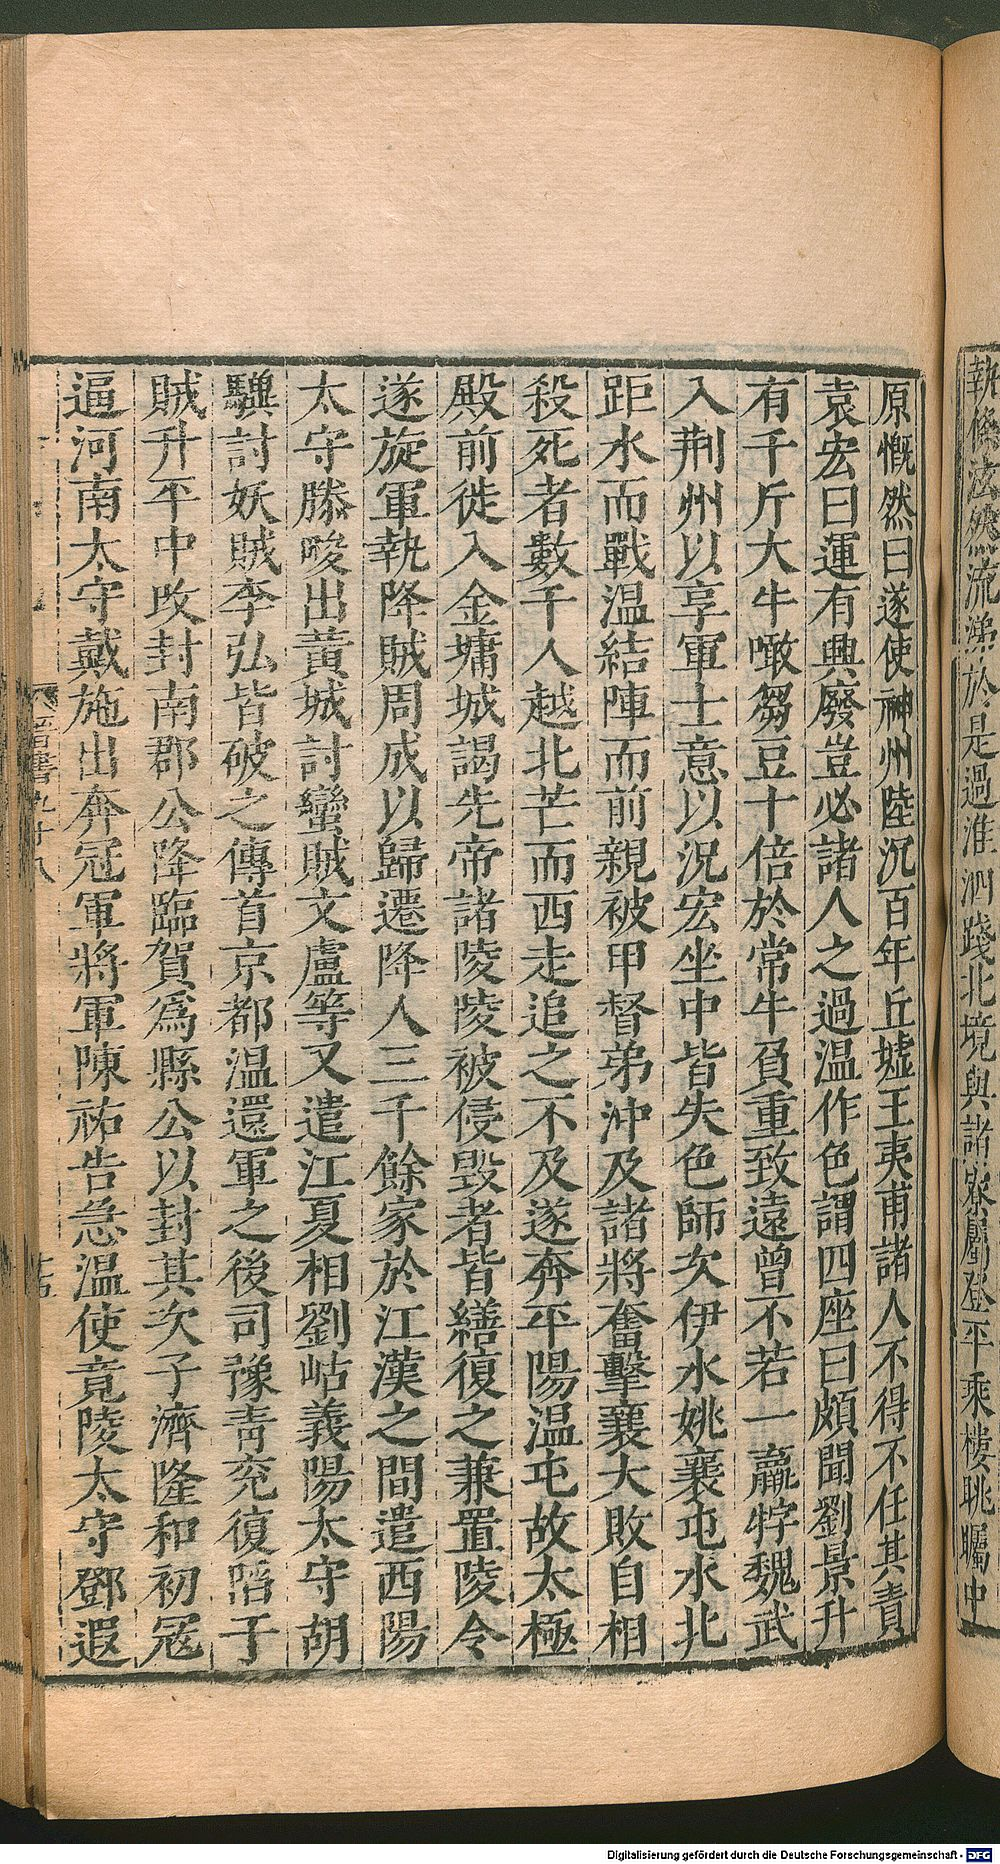 執條法然流涕於是過淮泗踐北境與諸寮屬登平乘樓眺矚中
原慨然曰遂使神州陸沉百年丘墟王夷甫諸人不得不任其責
袁宏曰運有興廢豈必諸人之過温作色謂四座曰頗聞劉景升
有千斤大牛噉芻豆十倍於常牛負重致遠曾不若一羸牸魏武
入荆州以享軍士意以况宏坐中皆失色師次伊水姚襄屯水北
距水而戰温結陣而前親被甲督弟沖及諸將奮擊襄大敗自相
殺死者數千人越北芒而西走追之不及遂奔平陽温屯故太極
殿前徙入金墉城謁先帝諸陵陵被侵毀者皆繕復之兼置陵令
遂旋軍執降賊周成以歸遷降人三千餘家於江漢之間遣西陽
太守滕畯出黄城討蠻賊文盧等又遣江夏相劉岵義陽太守胡
驥討妖賊李弘皆破之傳首京都温還軍之後司豫青兖復陷于
賊升平中改封南郡公降臨賀爲縣公以封其次子濟隆和初冦
逼河南太守戴施出奔冠軍將軍陳祐告急温使竟陵太守鄧遐
晉書九十八
Digitalisierung gefördert durch die Deutsche Forschungsgemeinschaft - DFG